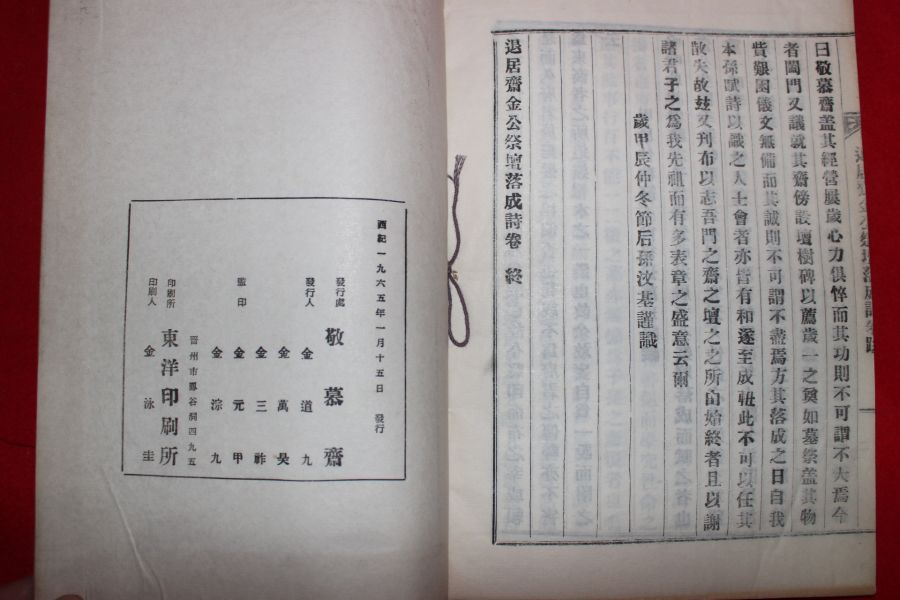 曰敬慕齋盖其經營屢歲心力俱悴而其功則不可謂不大焉今
者闔門又議就其齋傍設壇樹碑以薦歲一之奠如墓祭盖其物
貲艱困儀文無備而其誠則不可謂不盡焉方其落成之日自我
本孫賦詩以識之人士會者亦皆有和遂至成軸此不可以任其
散失故玆又刊布以志吾門之齋之壇之之所由始終者且以謝
諸君子之爲我先祖而有多表章之盛意云爾
歲甲辰仲冬節后孫汶基謹識
退居齋金公祭壇落成詩卷 終
西紀一九六五年一月十五日 發行
發行處 敬慕齋
發行人 金道九
金萬吳
金三祚
監印 金元甲
金淙九
晋州市鳳谷洞四九五
印刷所 東洋印刷所
印刷人 金泳圭